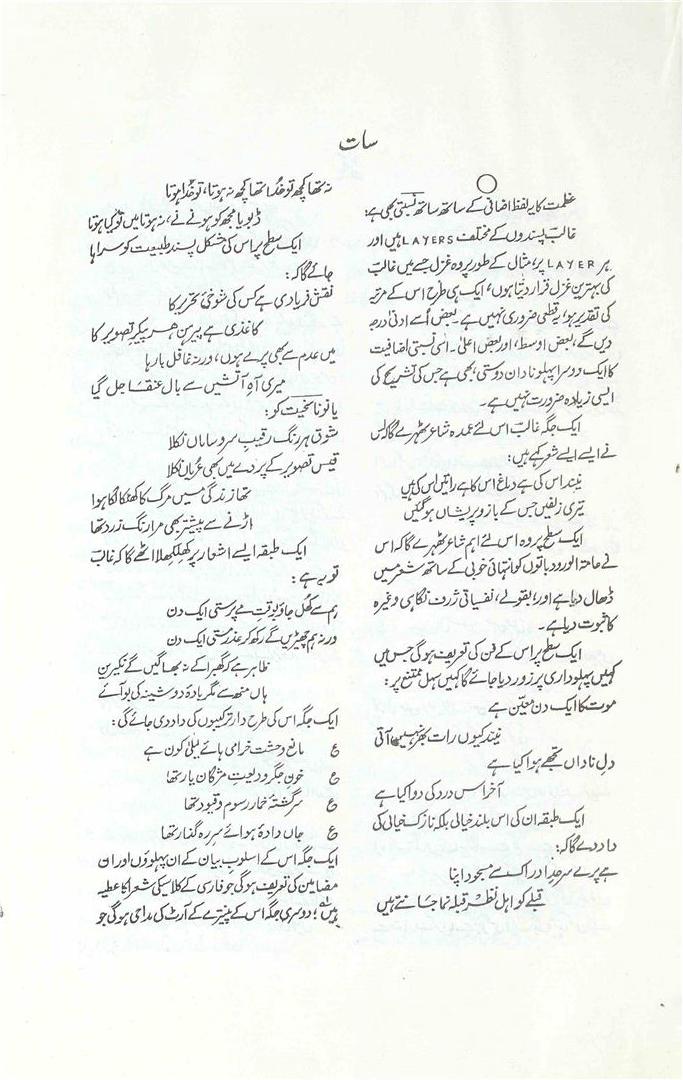 سات
عظمت کا یہ لفظ اضافی کے ساتھ ساتھ نسبتی بھی ہے:
غالب پسندوں کے مختلف LAYERS ہیں اور
ہر LAYER پر، مثال کے طور پر وہ غزل جسے میں غالب
کی بہترین غزل قرار دیتا ہوں، ایک ہی طرح اس کے مرتبہ
کی تقدیر ہو، یہ قطعی ضروری نہیں ہے۔ بعض اُسے ادنیٰ درجہ
دیں گے، بعض اوسط، اور بعض اعلیٰ۔ اسی نسبتی اضافیت
کا ایک دوسرا پہلو نادان دوستی، بھی ہے جس کی تشریح کی
ایسی زیادہ ضرورت نہیں ہے۔
ایک جگہ غالب اس لئے عمدہ شاعر ٹھہرے گا کہ اس
نے ایسے ایسے شعر کہے ہیں:
نیند اس کی ہے دماغ اس کا ہے راتیں اس کی ہیں
تیری زلفیں جس کے بازو پر پریشاں ہو گئیں
ایک سطح پر وہ اس لئے اہم شاعر ٹھہرے گا کہ اس
نے عامتہ الورود باتوں کو انتہائی خوبی کے ساتھ شعر میں
ڈھال دیا ہے اور، بقولے، نفسیاتی ژرف نگاہی وغیرہ
کا ثبوت دیا ہے۔
ایک سطح پر اس کے فن کی تعریف ہو گی جس میں
کہیں پہلو داری پر زور دیا جائے گا کہیں سہل ممتنع پر:
موت کا ایک دن معین ہے
نیند کیوں رات بھر نہیں آتی
دلِ ناداں تجھے ہوا کیا ہے
آخر اس درد کی دوا کیا ہے
ایک طبقہ ان کی اس بلند خیالی بلکہ نازک خیالی کی
داد دے گا کہ:
ہے پرے سرحدِ ادراک سے مسجود اپنا
قبلے کو اہلِ نظر قبلہ نما جانتے ہیں
نہ تھا کچھ تو خدا تھا کچھ نہ ہوتا، تو خدا ہوتا
ڈبویا مجھ کو ہونے نے، نہ ہوتا میں تو کیا ہوتا
ایک سطح پر اس کی مشکل پسند طبیعت کو سراہا
جائے گا کہ:
نقش فریادی ہے کس کی شوخیٔ تحریر کا
کاغذی ہے پیرہن ہر پیکرِ تصویر کا
میں عدم سے بھی پرے ہوں، ورنہ غافل بارہا
میری آہِ آتشیں سے بالِ عنقا جل گیا
یا نونا سخیت کو:
شوق ہر رنگ رقیبِ سر و ساماں نکلا
قیس تصویر کے پردے میں بھی عریاں نکلا
تھا زندگی میں مرگ کا کھٹکا لگا ہوا
اڑنے سے پیشتر بھی مرا رنگ زرد تھا
ایک طبقہ ایسے اشعار پر کھلکھلا اٹھے گا کہ غالب
تو یہ ہے:
ہم سے کھل جاؤ بوقتِ مے پرستی ایک دن
ورنہ ہم چھیڑیں گے رکھ کر عذرِ مستی ایک دن
ظاہر ہے کہ گھبرا کے نہ بھاگیں گے نکیرین
ہاں منھ سے مگر بادۂ دوشینہ کی بو آئے
ایک جگہ اس کی طرح دار ترکیبوں کی داد دی جائے گی:
ع مانعِ وحشت خرامی ہائے لیلیٰ کون ہے
ع خونِ جگر ودیعتِ مژگانِ یار تھا
ع سرگشتۂ خمارِ رسوم و قیود تھا
ع جاں دادۂ ہوائے سرِ رہ گذار تھا
ایک جگہ اس کے اسلوبِ بیان کے ان پہلوؤں اور ان
مضامین کی تعریف ہو گی جو فارسی کے کلاسیکی شعرا کا عطیہ
ہیں؛ دوسری جگہ اس کے پینترے کے آرٹ کی مداحی ہو گی جو